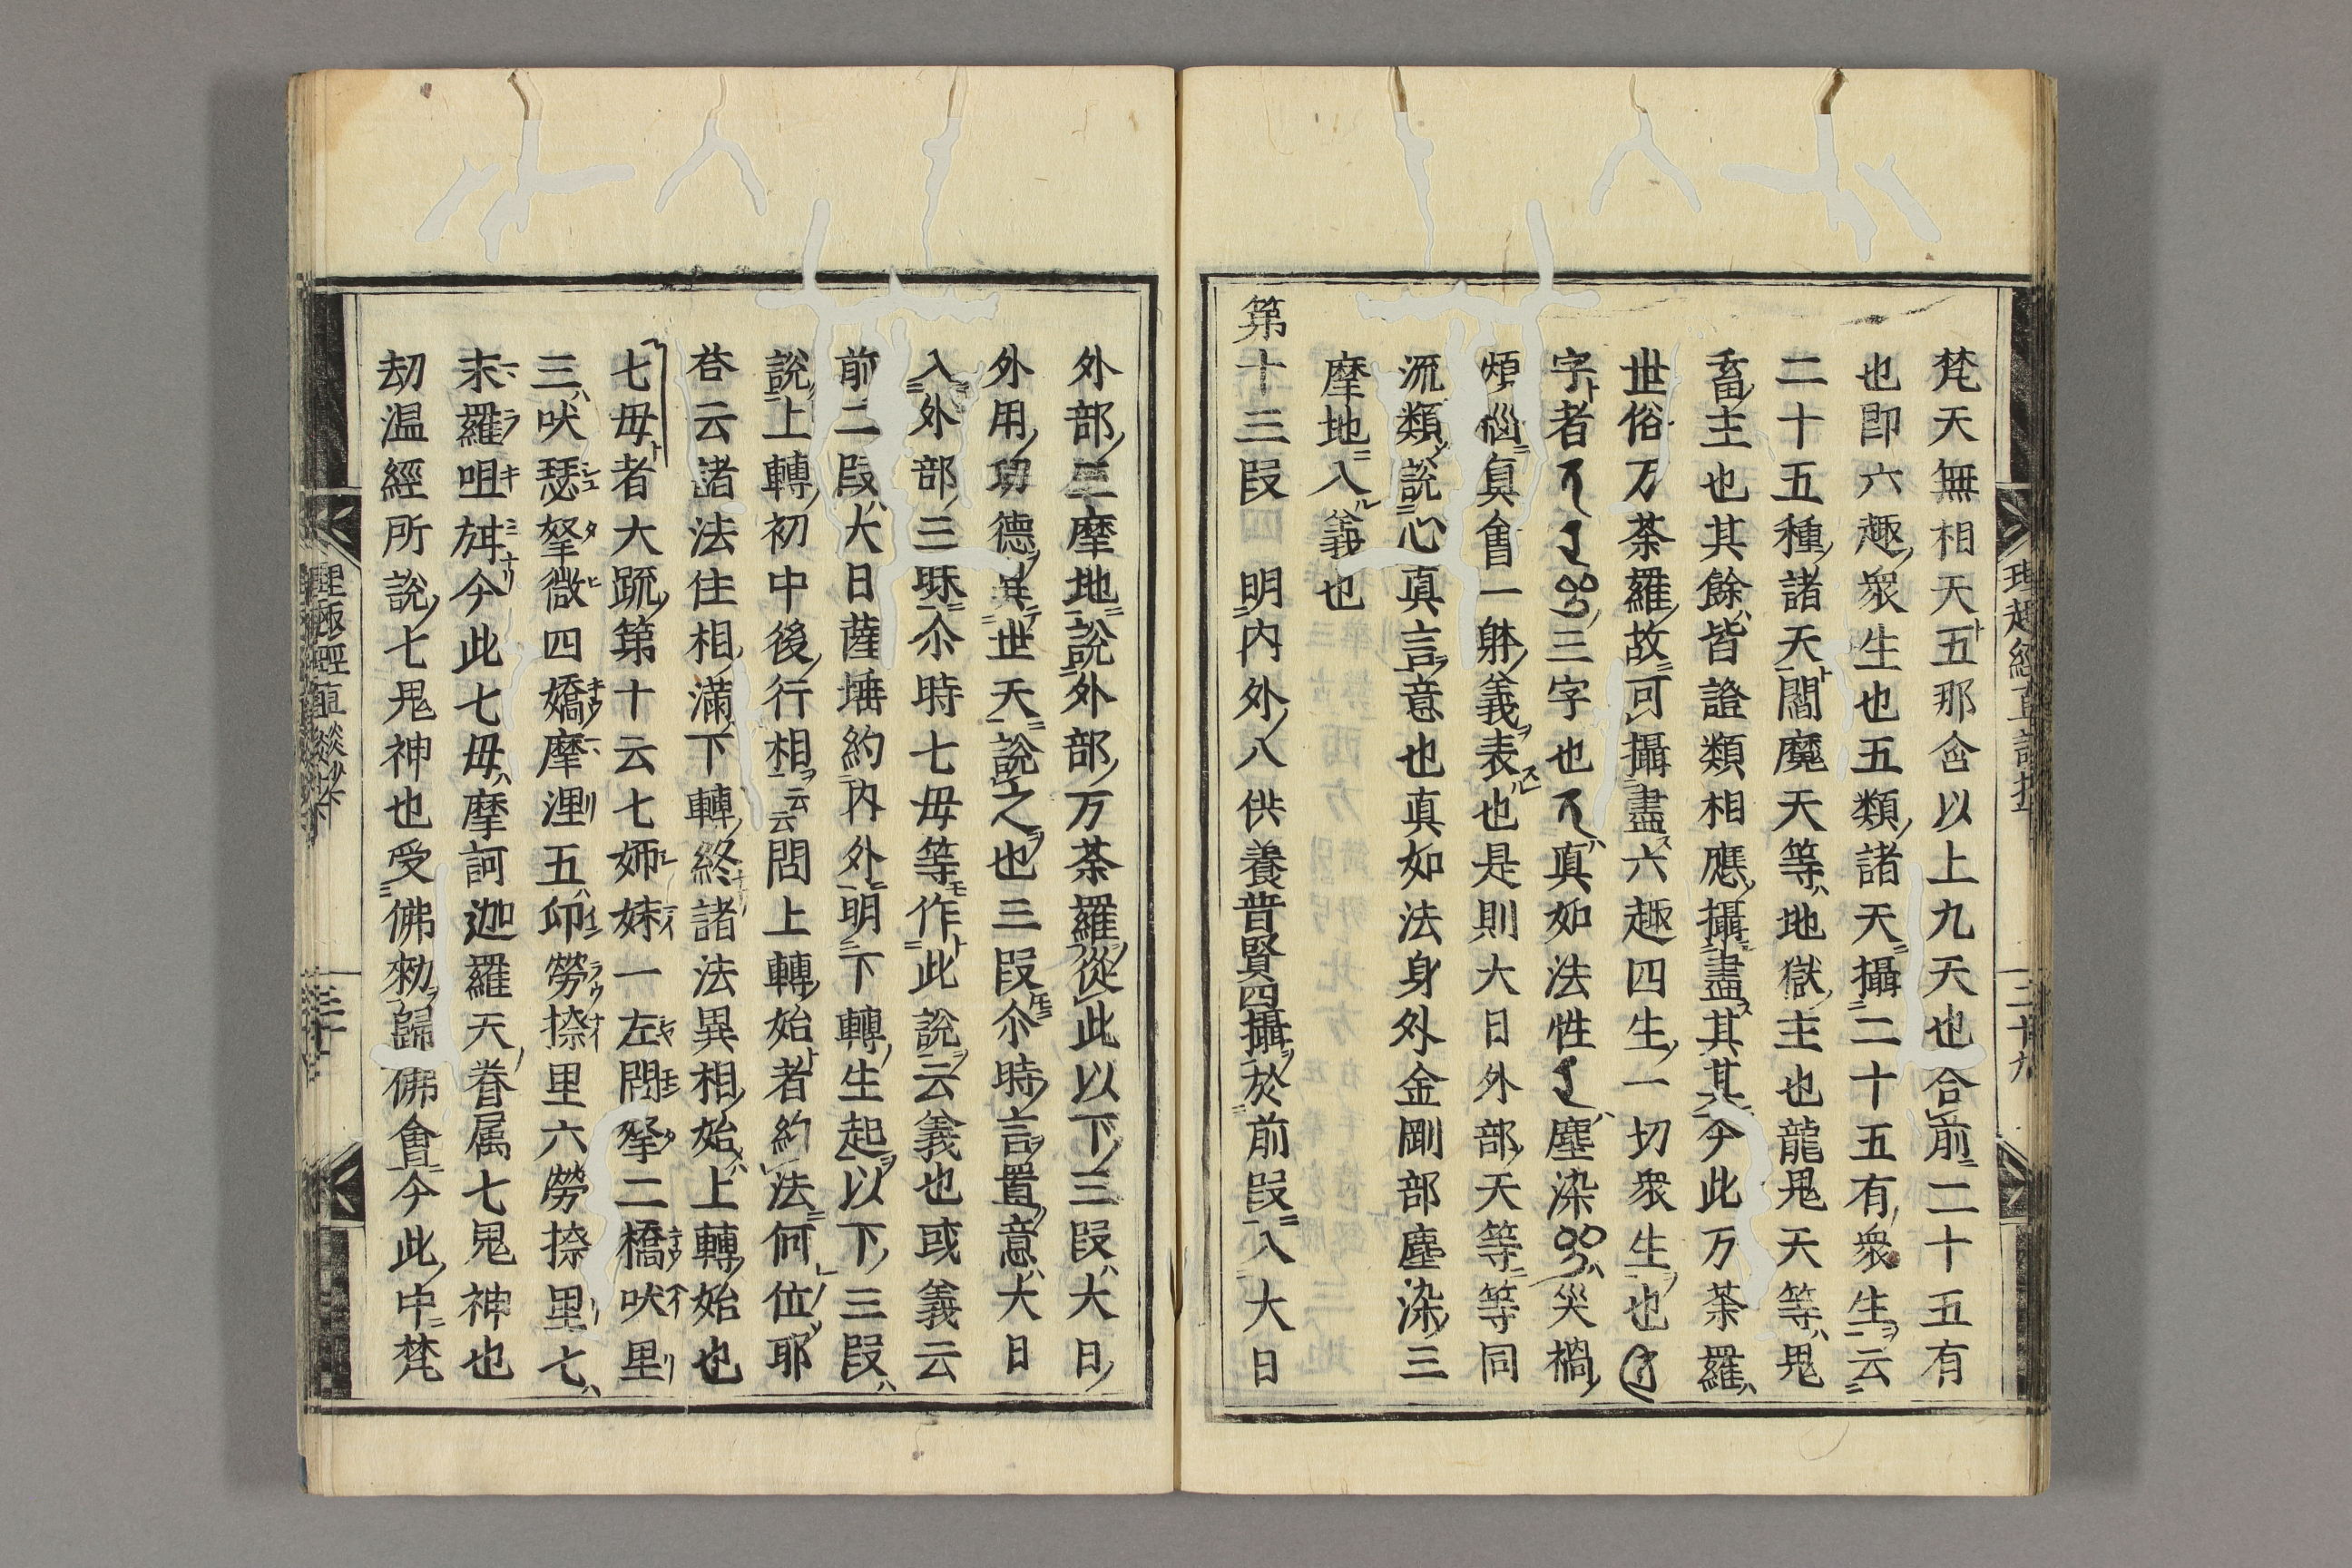 梵天無相天五那含以上九天也合前二十五有
也即六趣衆生也五類諸天攝二十五有衆生云
二十五種諸天閻魔天等地獄主也龍鬼天等鬼
畜主也其餘皆證類相應攝盡其甚今此万荼羅
世俗万荼羅故可攝盡六趣四生一切衆生也
字者三字也真如法性塵染災禍
煩惱眞會一躰義表也是則大日外部天等等同
流類說心真言意也真如法身外金剛部塵染三
摩地入義也
第十三段明内外八供養普賢四攝於前段入大日
外部三摩地說外部万荼羅從此以下三段大日
外用功德其世天說之也三段尒時言置意大日
入外部三昧尒時七母等作此說云義也或義云
前二段大日薩埵約内外明下轉生起以下三段
說上轉初中後行相云云問上轉始者約法何位耶
荅云諸法住相滿下轉終諸法異相始上轉始也
七母者大䟽第十云七姉妹一左問拏二橋吠里
三吠瑟拏微四嬌摩浬五印勞捺里六勞捺里七
末羅咀弭今此七母摩訶迦羅天眷属七鬼神也
刧温經所說七鬼神也受佛勑歸佛會今此中梵